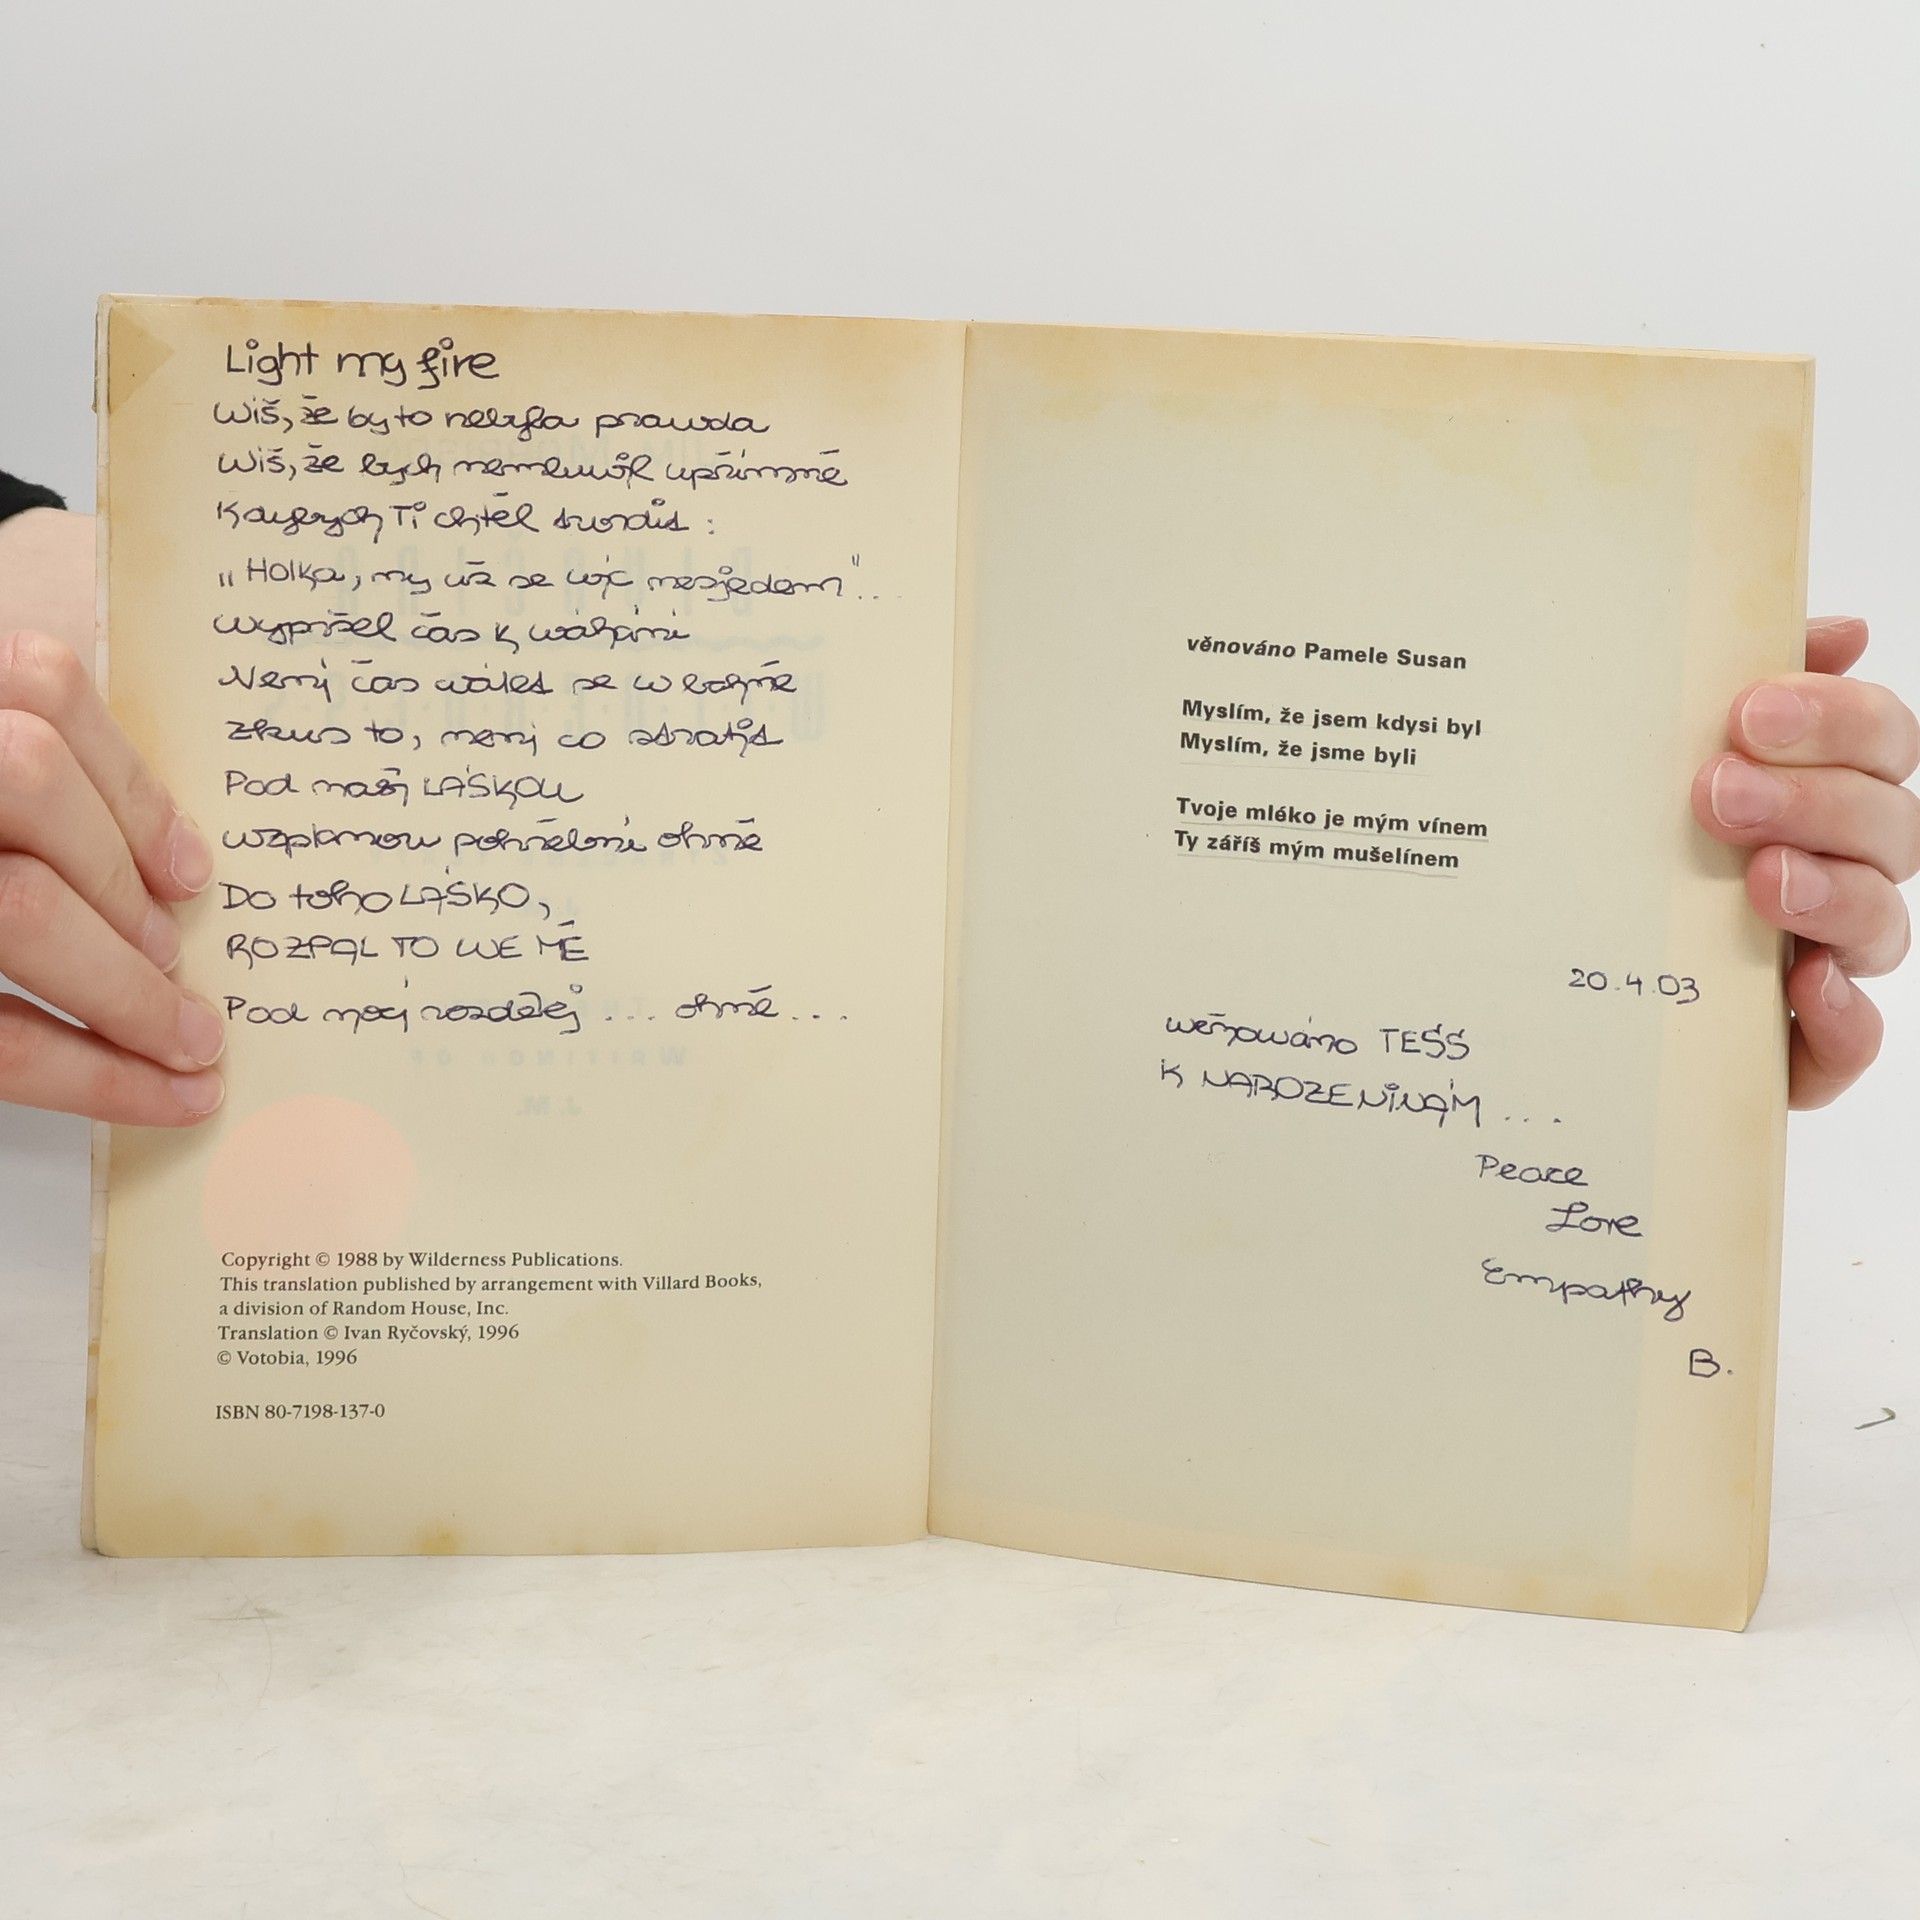 Light my fire
Wiš, že by to nebyla prawda
Wiš, že bych nemluwil upřímně
Kdybych Ti chtěl twrdit :
„Holka, my už se wíc nesjedem"...
Wypršel čas k wáhání
Není čas wálet se w bahně
Zkus to, není co stratit
Pod naší LÁSKOU
wzplanou pohřební ohně
Do toho LÁSKO,
ROZPAL TO WE MĚ
Pod nocí rozdělej ... ohně ...
Copyright © 1988 by Wilderness Publications.
This translation published by arrangement with Villard Books,
a division of Random House, Inc.
Translation © Ivan Ryčovský, 1996
© Votobia, 1996
ISBN 80-7198-137-0
věnováno Pamele Susan
Myslím, že jsem kdysi byl
Myslím, že jsme byli
Tvoje mléko je mým vínem
Ty záříš mým mušelínem
20.4.03
wěnowáno TESS
K NAROZENINÁM ...
Peace
Love
Empathy
B.